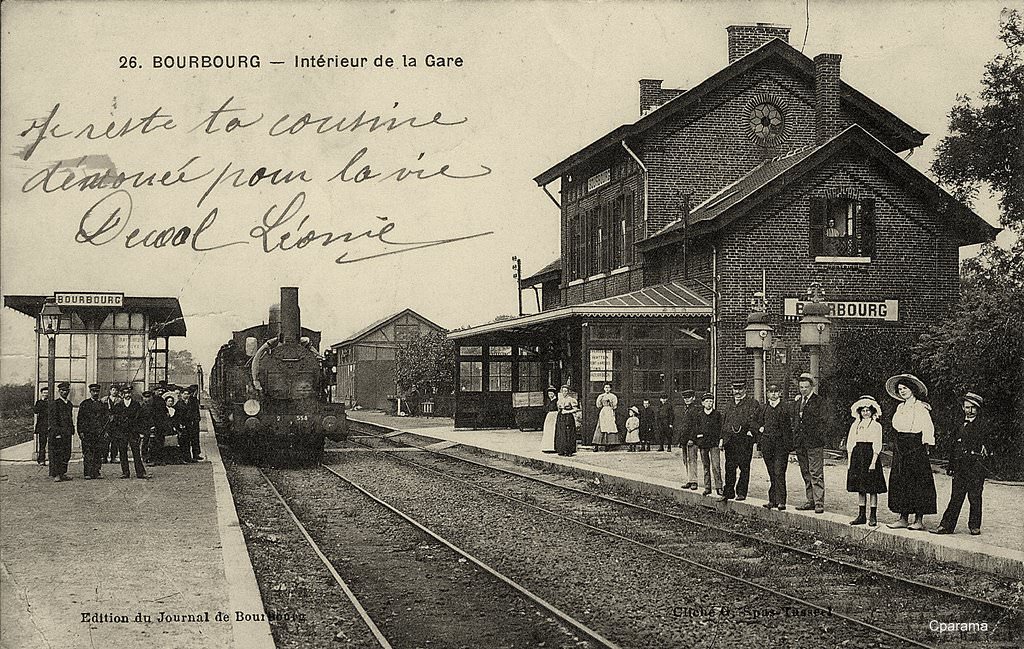 26. BOURBOURG — Intérieur de la Gare
Je reste ta cousine
démouée pour la vie
Duval Léonie
BOURBOURG
BOURBOURG
BOURBOURG
354
Edition du Journal de Bourbourg
Cliché
Cparama